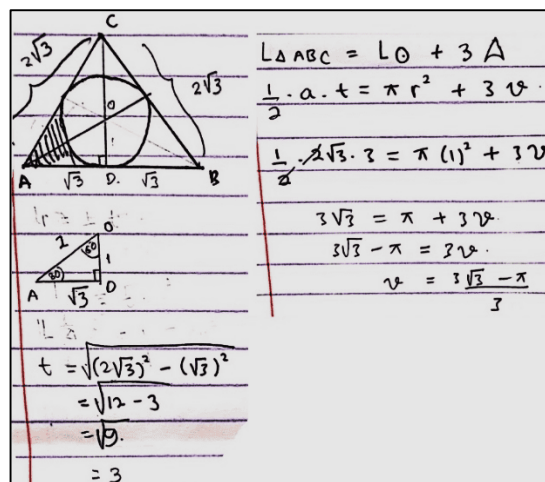 C
2√3
2√3
O
1
A
√3
D.
√3
B
2
O
60
1
30
A
√3
D
t = √(2√3)² - (√3)²
= √12 - 3
= √9.
= 3
L△ABC = L⊙ + 3 A
1/2 · a · t = π r² + 3 v.
1/2 · 2√3 · 3 = π (1)² + 3v
3√3 = π + 3v
3√3 - π = 3v.
v = 3√3 - π / 3